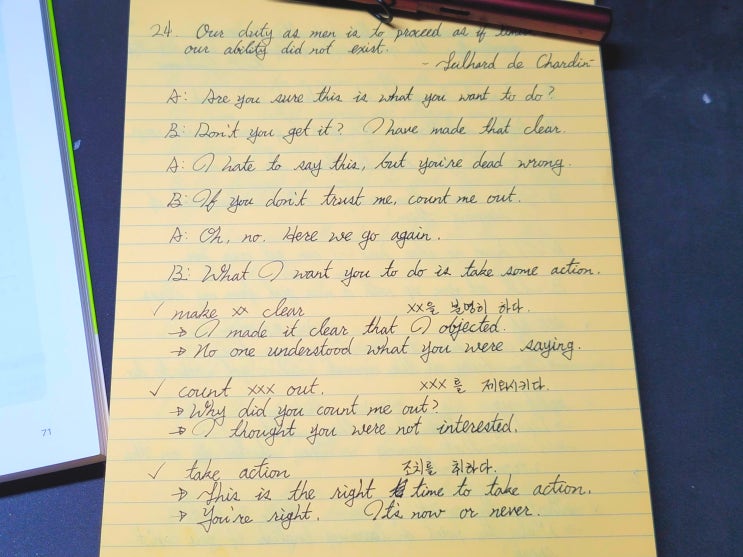 24. Our duty as men is to proceed as if
our ability did not exist.
- Teilhard de Chardin-
A: Are you sure this is what you want to do?
B: Don't you get it? I have made that clear.
A: I hate to say this, but you're dead wrong.
B: If you don't trust me, count me out.
A: Oh, no. Here we go again.
B: What I want you to do is take some action.
✓ make xx clear xx을 분명히 하다.
→ I made it clear that I objected.
→ No one understood what you were saying.
✓ count xxx out. xxx를 제외시키다.
→ Why did you count me out?
→ I thought you were not interested.
✓ take action 조치를 취하다.
→ This is the right time to take action.
→ You're right. It's now or never.
71